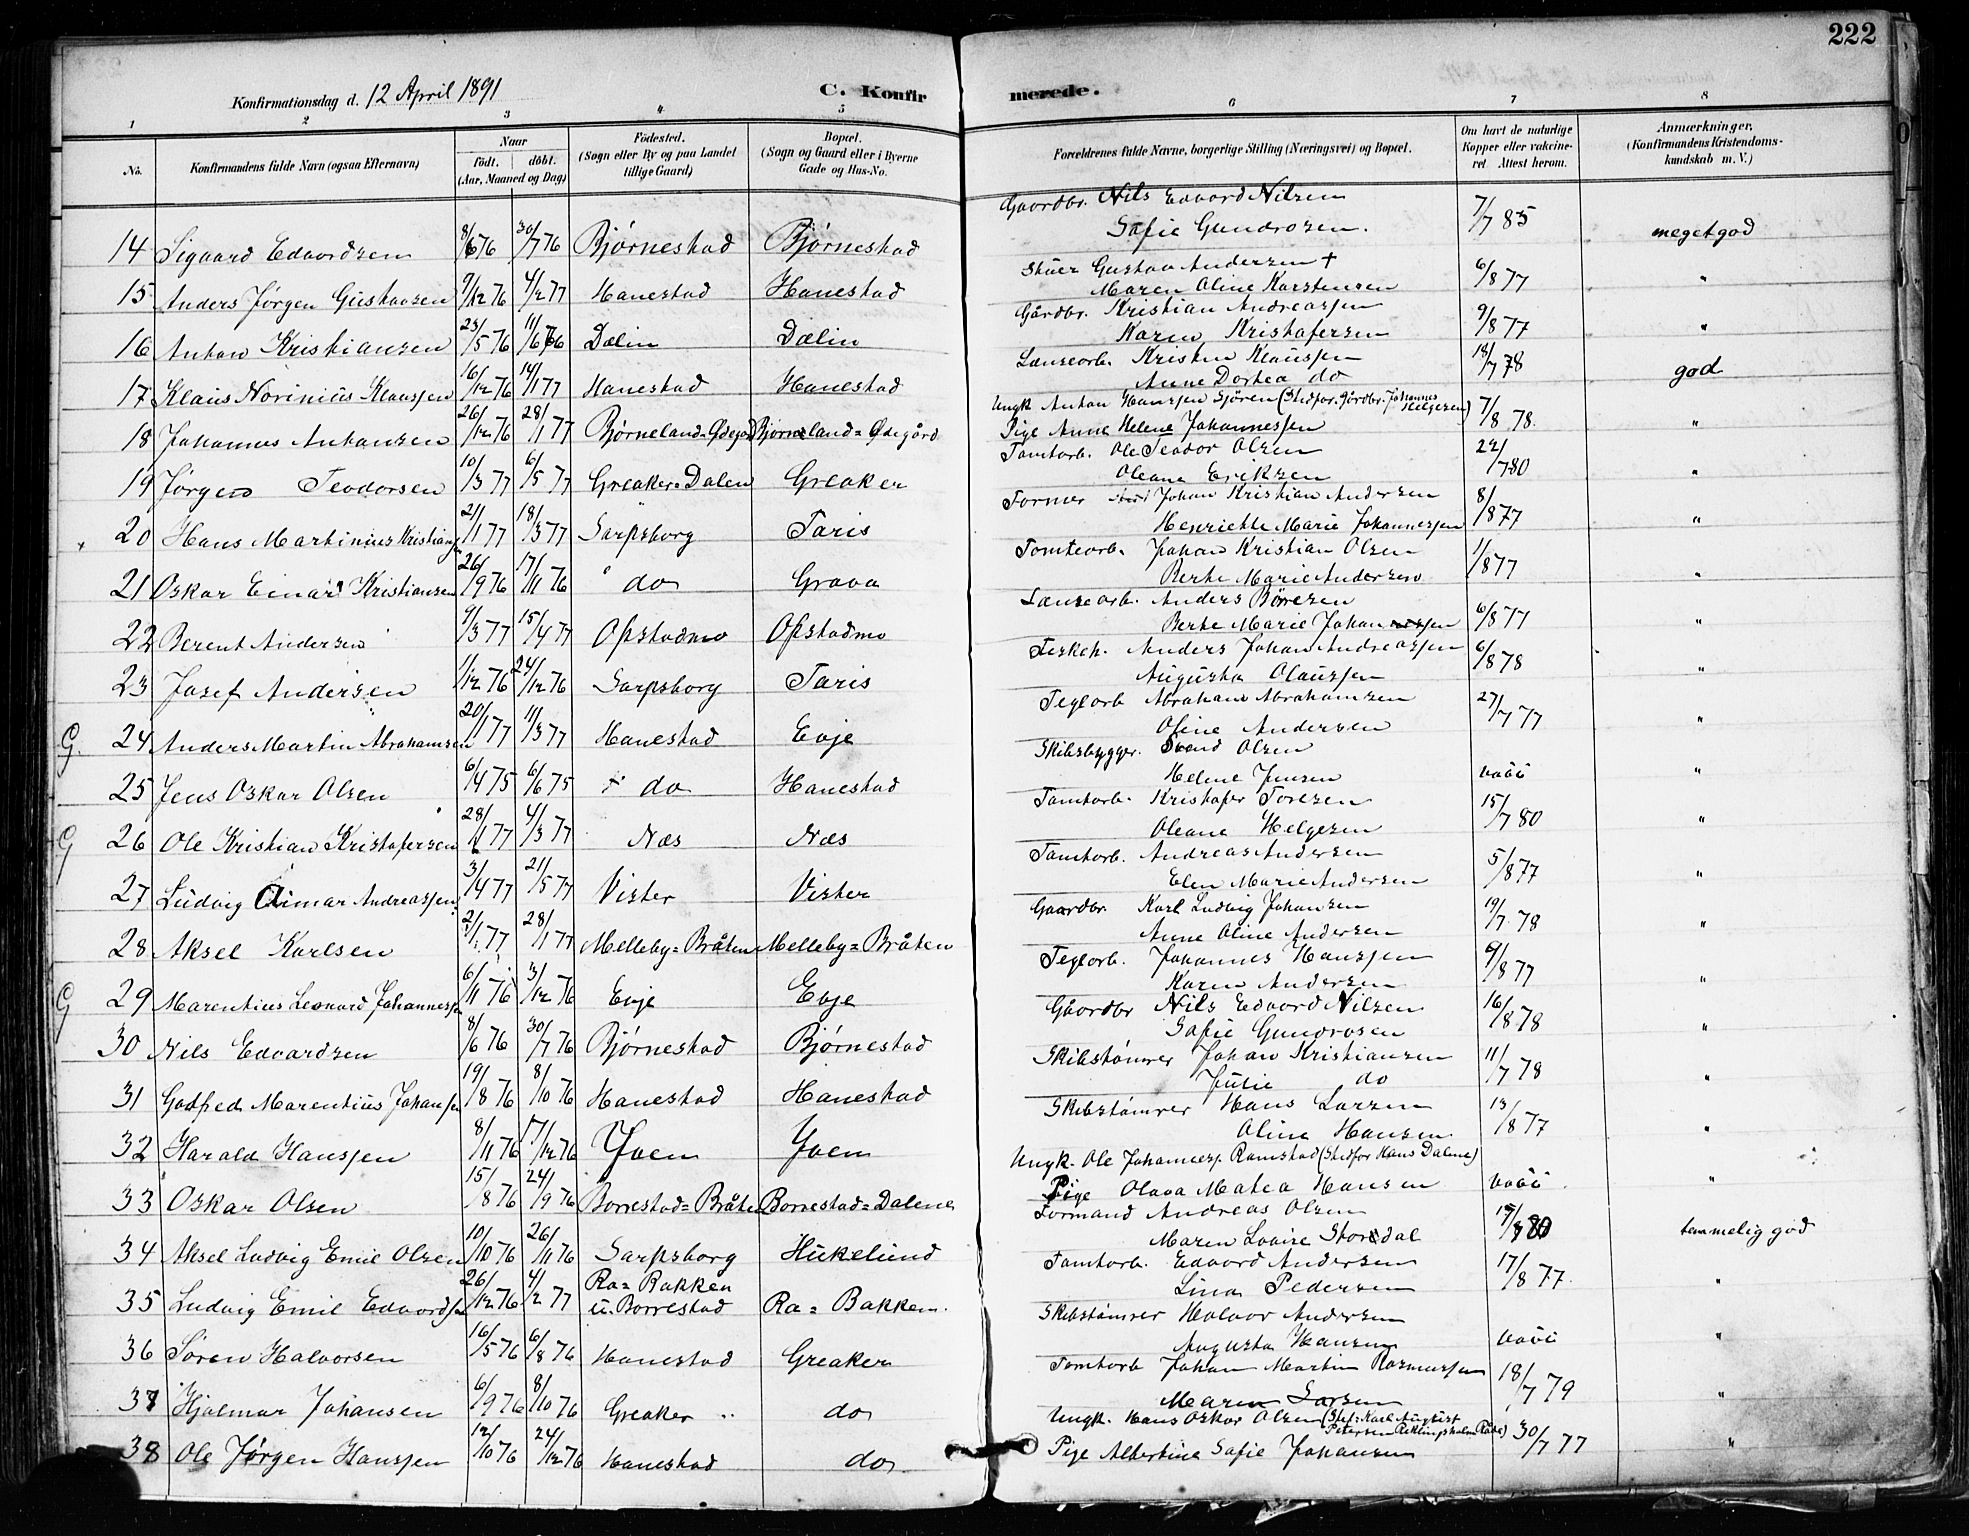 222
Konfirmationsdag d. 12 April 1891 C. Konfirmerede.
1 2 3 4 5 6 7 8
No. Konfirmandens fulde Navn (ogsaa Efternavn) Naar født. døbt. (Aar, Maaned og Dag) Fødested. (Sogn eller By og paa Landet tillige Gaard) Bopæl. (Sogn og Gaard eller i Byerne Gade og Hus-No. Forældrenes fulde Navne, borgerlige Stilling (Næringsvei) og Bopæl. Om havt de naturlige Kopper eller vaccineret Attest herom. Anmærkninger. (Konfirmandens Kristendomskundskab m. V.)
Gaardbr. Nils Edvard Nilsen
14 Sigvard Edvardsen 8/6 76 30/7 76 Bjørnestad Bjørnestad Sofie Gundrosen. 7/7 85 meget god
Gustav Andersen +
15 Anders Jørgen Gustavsen 9/12 76 4/2 77 Hanestad Hanestad Maren Oline Karstensen 6/8 77 "
Gårdbr. Kristian Andreassen
16 Anton Kristiansen 23/5 76 11/6 76 Dælin Dælin Karen Kristofersen 9/8 77 "
Lænseorb. Kristen Klaussen
17 Klaus Norinius Klaussen 16/12 76 14/1 77 Hanestad Hanestad Anne Dortea do 18/7 78 god
Ungk Anton Hanssen Gjøren (Stedfor. Gårdbr. Johannes Helgesen)
18 Johannes Antonsen 26/12 76 28/1 77 Bjørneland=Ødegård Bjørneland=Ødegård Pige Anne Helene Johannessen 7/8 78. "
Tomtorb. Ole Teodor Olsen
19 Jørgen Teodorsen 10/3 77 6/5 77 Greaker=Dalen Greaker Oleane Eriksen 22/7 80 "
Former Johan Kristian Andersen
20 Hans Martinius Kristiansen 21/1 77 18/3 77 Sarpsborg Taris Henriette Marie Johannessen 8/8 77 "
Tomteorb. Johan Kristian Olsen
21 Oskar Einar Kristiansen 26/9 76 17/11 76 do Grava Berte Marie Andersen 1/8 77 "
Lænseorb. Anders Børresen
22 Berent Andersen 9/3 77 15/4 77 Opstadmo Opstadmo Berte Marie Johannessen 6/8 77 "
Anders Johan Andreassen
23 Josef Andersen 1/12 76 24/12 76 Sarpsborg Taris Augusta Olaussen 6/8 78 "
Teglorb Abraham Abrahamsen
G. 24 Anders Martin Abrahamsen 20/1 77 11/3 77 Hanestad Evje Oline Andersen 27/7 77 "
Skibsbygger. Svend Olsen
25 Jens Oskar Olsen 6/4 75 6/6 75 do Hanestad Helene Jensen "
Tomtorb. Kristofer Toresen
G 26 Ole Kristian Kristofersen 28/1 77 4/3 77 Næs Næs Oleane Helgesen 15/7 80 "
Tomtorb. Andreas Andersen
27 Ludvig Aimar Andreassen 3/4 77 21/5 77 Vister Vister Elen Marie Andersen 5/8 77 "
Gaardbr. Karl Ludvig Johansen
28 Aksel Karlsen 2/1 77 28/1 77 Melleby=Bråten Melleby=Bråten Anne Oline Andersen 19/7 78 "
Teglorb. Johannes Hanssen
G 29 Marentius Leonard Johannessen 6/11 76 3/12 76 Evje Evje Karen Andersen 9/8 77 "
Gåordbr Nils Edvard Nilsen
30 Nils Edvardsen 8/6 76 30/7 76 Bjørnestad Bjørnestad Sofie Gundrosen 16/8 78 "
Skibstømrer Johan Kristiansen
31 Godfred Marentius Johansen 19/8 76 8/10 76 Hanestad Hanestad Julie do 11/7 78 "
Skibstømrer Hans Larsen
32 Harald Hanssen 8/11 76 17/12 76 Yven Yven Oline Hansen 13/8 77 "
Ungk. Ole Johanness. Ramstad (Stedfor Hans Dalene)
33 Oskar Olsen 15/8 76 24/9 76 Borrestad=Bråten Borrestad=Dalene Pige Olava Matea Hansen "
Formand Andreas Olsen
34 Aksel Ludvig Emil Olsen 10/10 76 26/11 76 Sarpsborg Hukelund Maren Lovise Storedal temmelig god
Tomtorb. Edvard Andersen
35 Ludvig Emil Edvardsen 26/12 76 4/2 77 Ra=Bakken u. Borrestad Ra=Bakken. Lina Pedersen 17/8 77. "
Skibstømrer Halvor Andersen
36 Søren Halvorsen 16/5 76 6/8 76 Hanestad Greaker Augusta Hansen "
Tomtorb Johan Martin Rasmussen
37 Hjalmar Johansen 6/9 76 8/10 76 Greaker do Maren Larsen 18/7 79 "
Ungk. Hans Oskar Olsen (Stef: Karl August Petersen Råde)
38 Ole Jørgen Hanssen 12/10 76 24/12 76 Hanestad do Pige Albertine Sofie Johansen 30/7 77 "